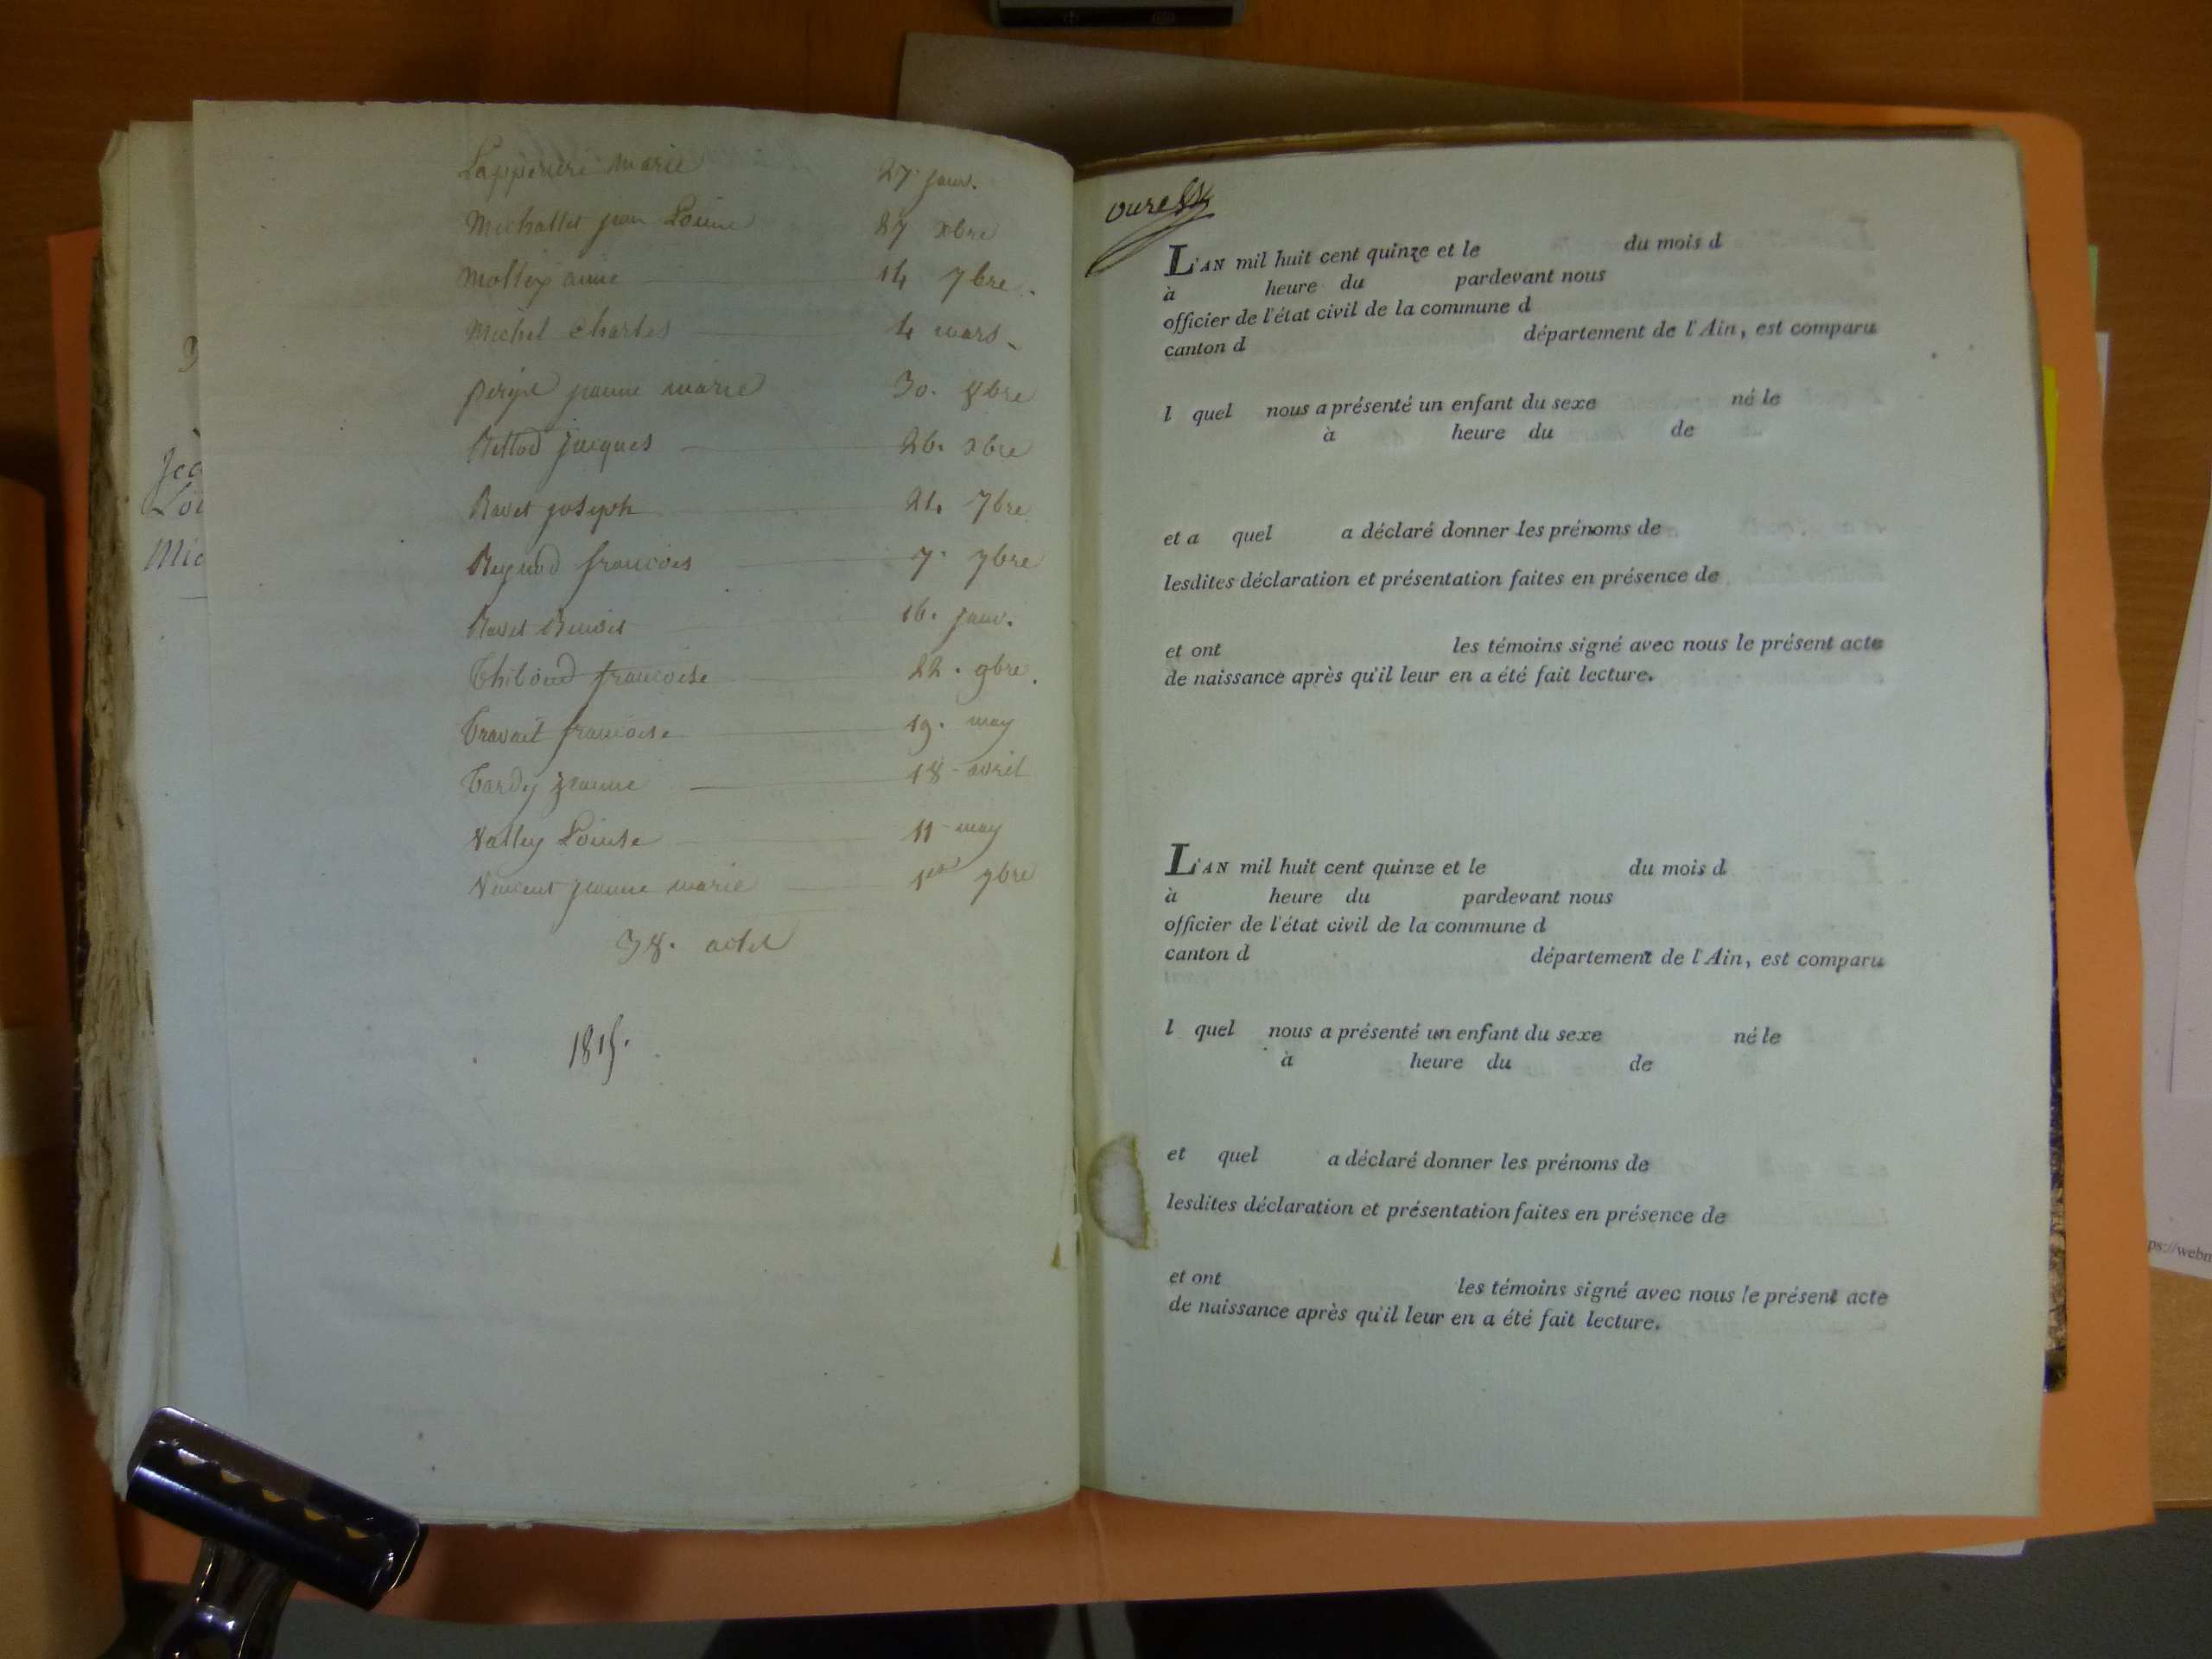 marie 27 janv.
jean Louise xbre
anne 14 7bre.
Michel Charles 4 mars
jeanne marie 30. 8bre
jacques 26. xbre
Ravet joseph 21. 7bre
françois 7. 7bre
Ravet Benoit 16. janv.
françoise 22. 9bre.
Travait françoise 19. may
Tardy jeanne 18 avril
Valley Louise 11 may
Vincent jeanne marie 1er 7bre
38. actes
1815.
Jea
Loi
Mic
L'AN mil huit cent quinze et le du mois d
à heure du pardevant nous
officier de l'état civil de la commune d
canton d département de l'Ain, est comparu
l quel nous a présenté un enfant du sexe né le
à heure du de
et a quel a déclaré donner les prénoms de
lesdites déclaration et présentation faites en présence de
et ont les témoins signé avec nous le présent acte
de naissance après qu'il leur en a été fait lecture.
L'AN mil huit cent quinze et le du mois d
à heure du pardevant nous
officier de l'état civil de la commune d
canton d département de l'Ain, est comparu
l quel nous a présenté un enfant du sexe né le
à heure du de
et quel a déclaré donner les prénoms de
lesdites déclaration et présentation faites en présence de
et ont les témoins signé avec nous le présent acte
de naissance après qu'il leur en a été fait lecture.
ps://webm